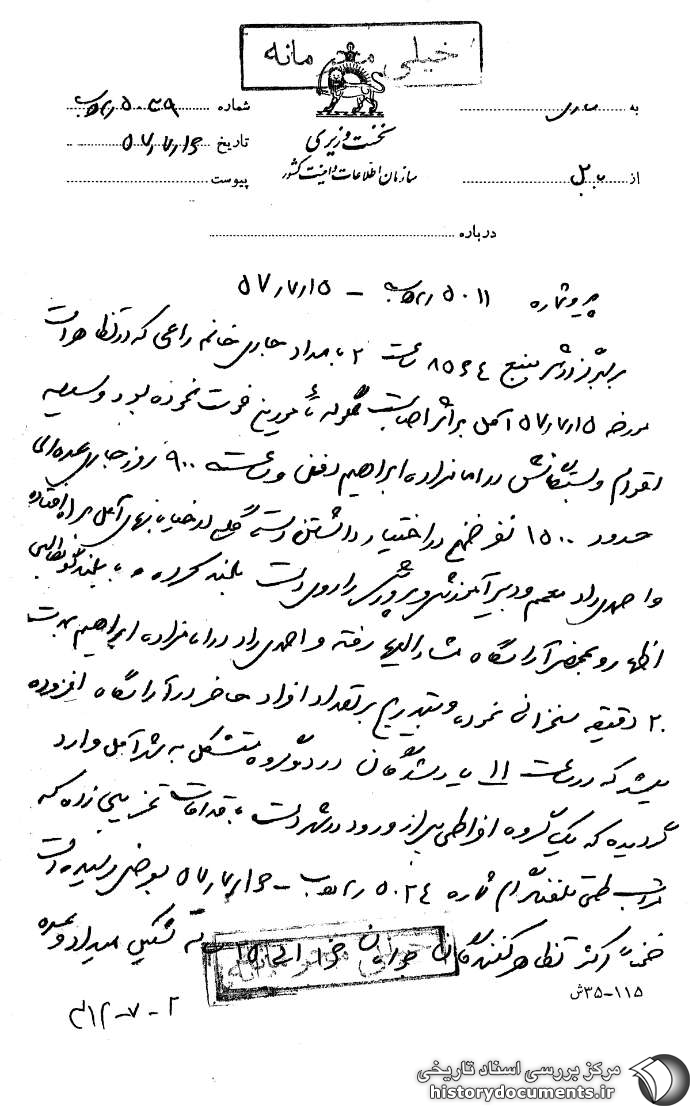 خیلی محرمانه
به ساری
شماره ۵۰۳۹ر۵ﻫ ب
نخست وزیری
تاریخ ۱۶ر۷ر۵۷
سازمان اطلاعات و امنیت کشور
از بابل
پیوست
درباره
پیرو شماره ۵۰۱۱ر۵ﻫ ب – ۱۵ر۷ر۵۷
برابر گزارش منبع ۸۵۶۴ ساعت ۲ بامداد جاری خانم راعی که در تظاهرات
مورخه ۱۵ر۷ر۵۷ آمل بر اثر اصابت گلوله مأمورین فوت نموده بود وسیله
اقوام و بستگانش در امامزاده ابراهیم دفن و ساعت ۹۰۰ روز جاری عده‌ای
حدود ۱۵۰۰ نفر ضمن در اختیار داشتن دسته گل در خیابانهای آمل براه افتاده
و احمدی راد معلم و دبیر آموزش و پرورش را روی دست بلند کرده و با بلندگو مطالبی
اظهار و بمحض آرامگاه مشارالیها رفته و احمدی راد در امامزاده ابراهیم بمدت
۲۰ دقیقه سخنرانی نموده و بتدریج بر تعداد افراد حاضر در آرامگاه افزوده
میشد که در ساعت ۱۱ یاد شدگان در دو گروه متشکل به شهر آمل وارد
گردیده که یک گروه افراطی پس از ورود در شهر دست باقدامات تخریبی زده که
مراتب طی تلفنگرام شماره ۵۰۲۴ر۵ﻫ ب – ۱۶ر۷ر۵۷ بعرض رسیده است
ضمناً اکثر تظاهرکنندگان جوانان تشکیل میداد و عمده
خیلی محرمانه
۱۱۵–۳۵ش
۲ – ۷ – ۳۱۲
مرکز بررسی اسناد تاریخی
historydocuments.ir